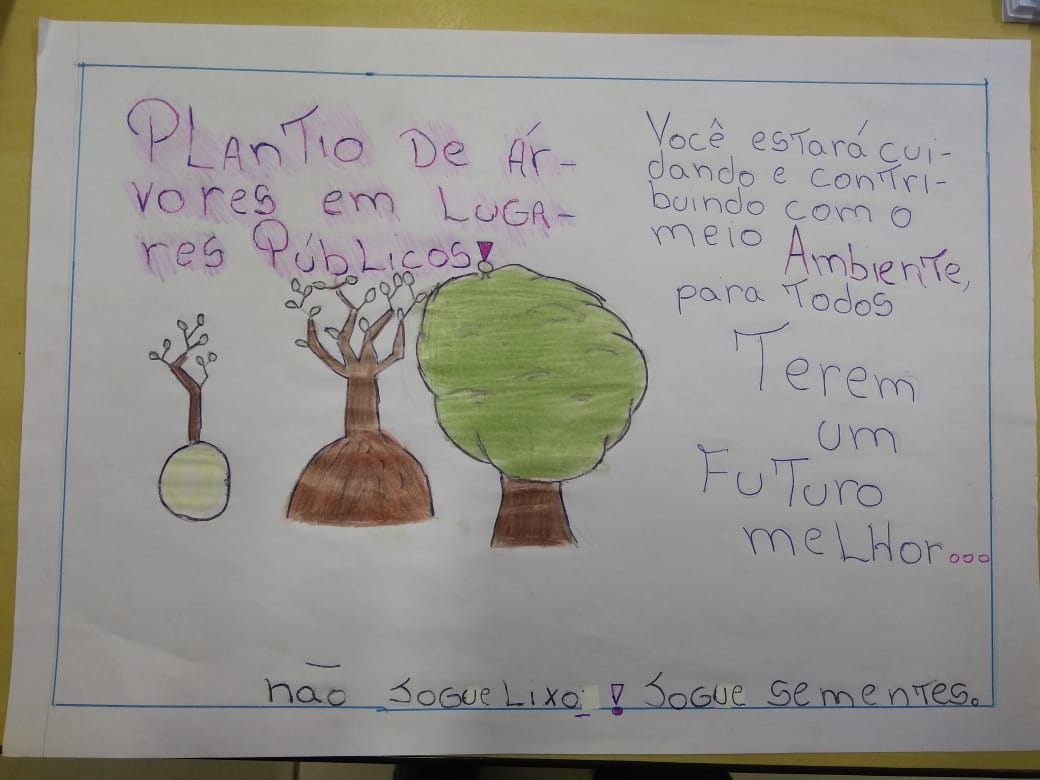 PLanTio De Ár-
vores em LUGA-
res PúbLicos!
Você esTará cui-
dando e conTri-
buindo com o
meio AmbienTe,
para Todos
Terem
um
FuTuro
meLHor...
não JoGue Lixo! JoGue sementes.